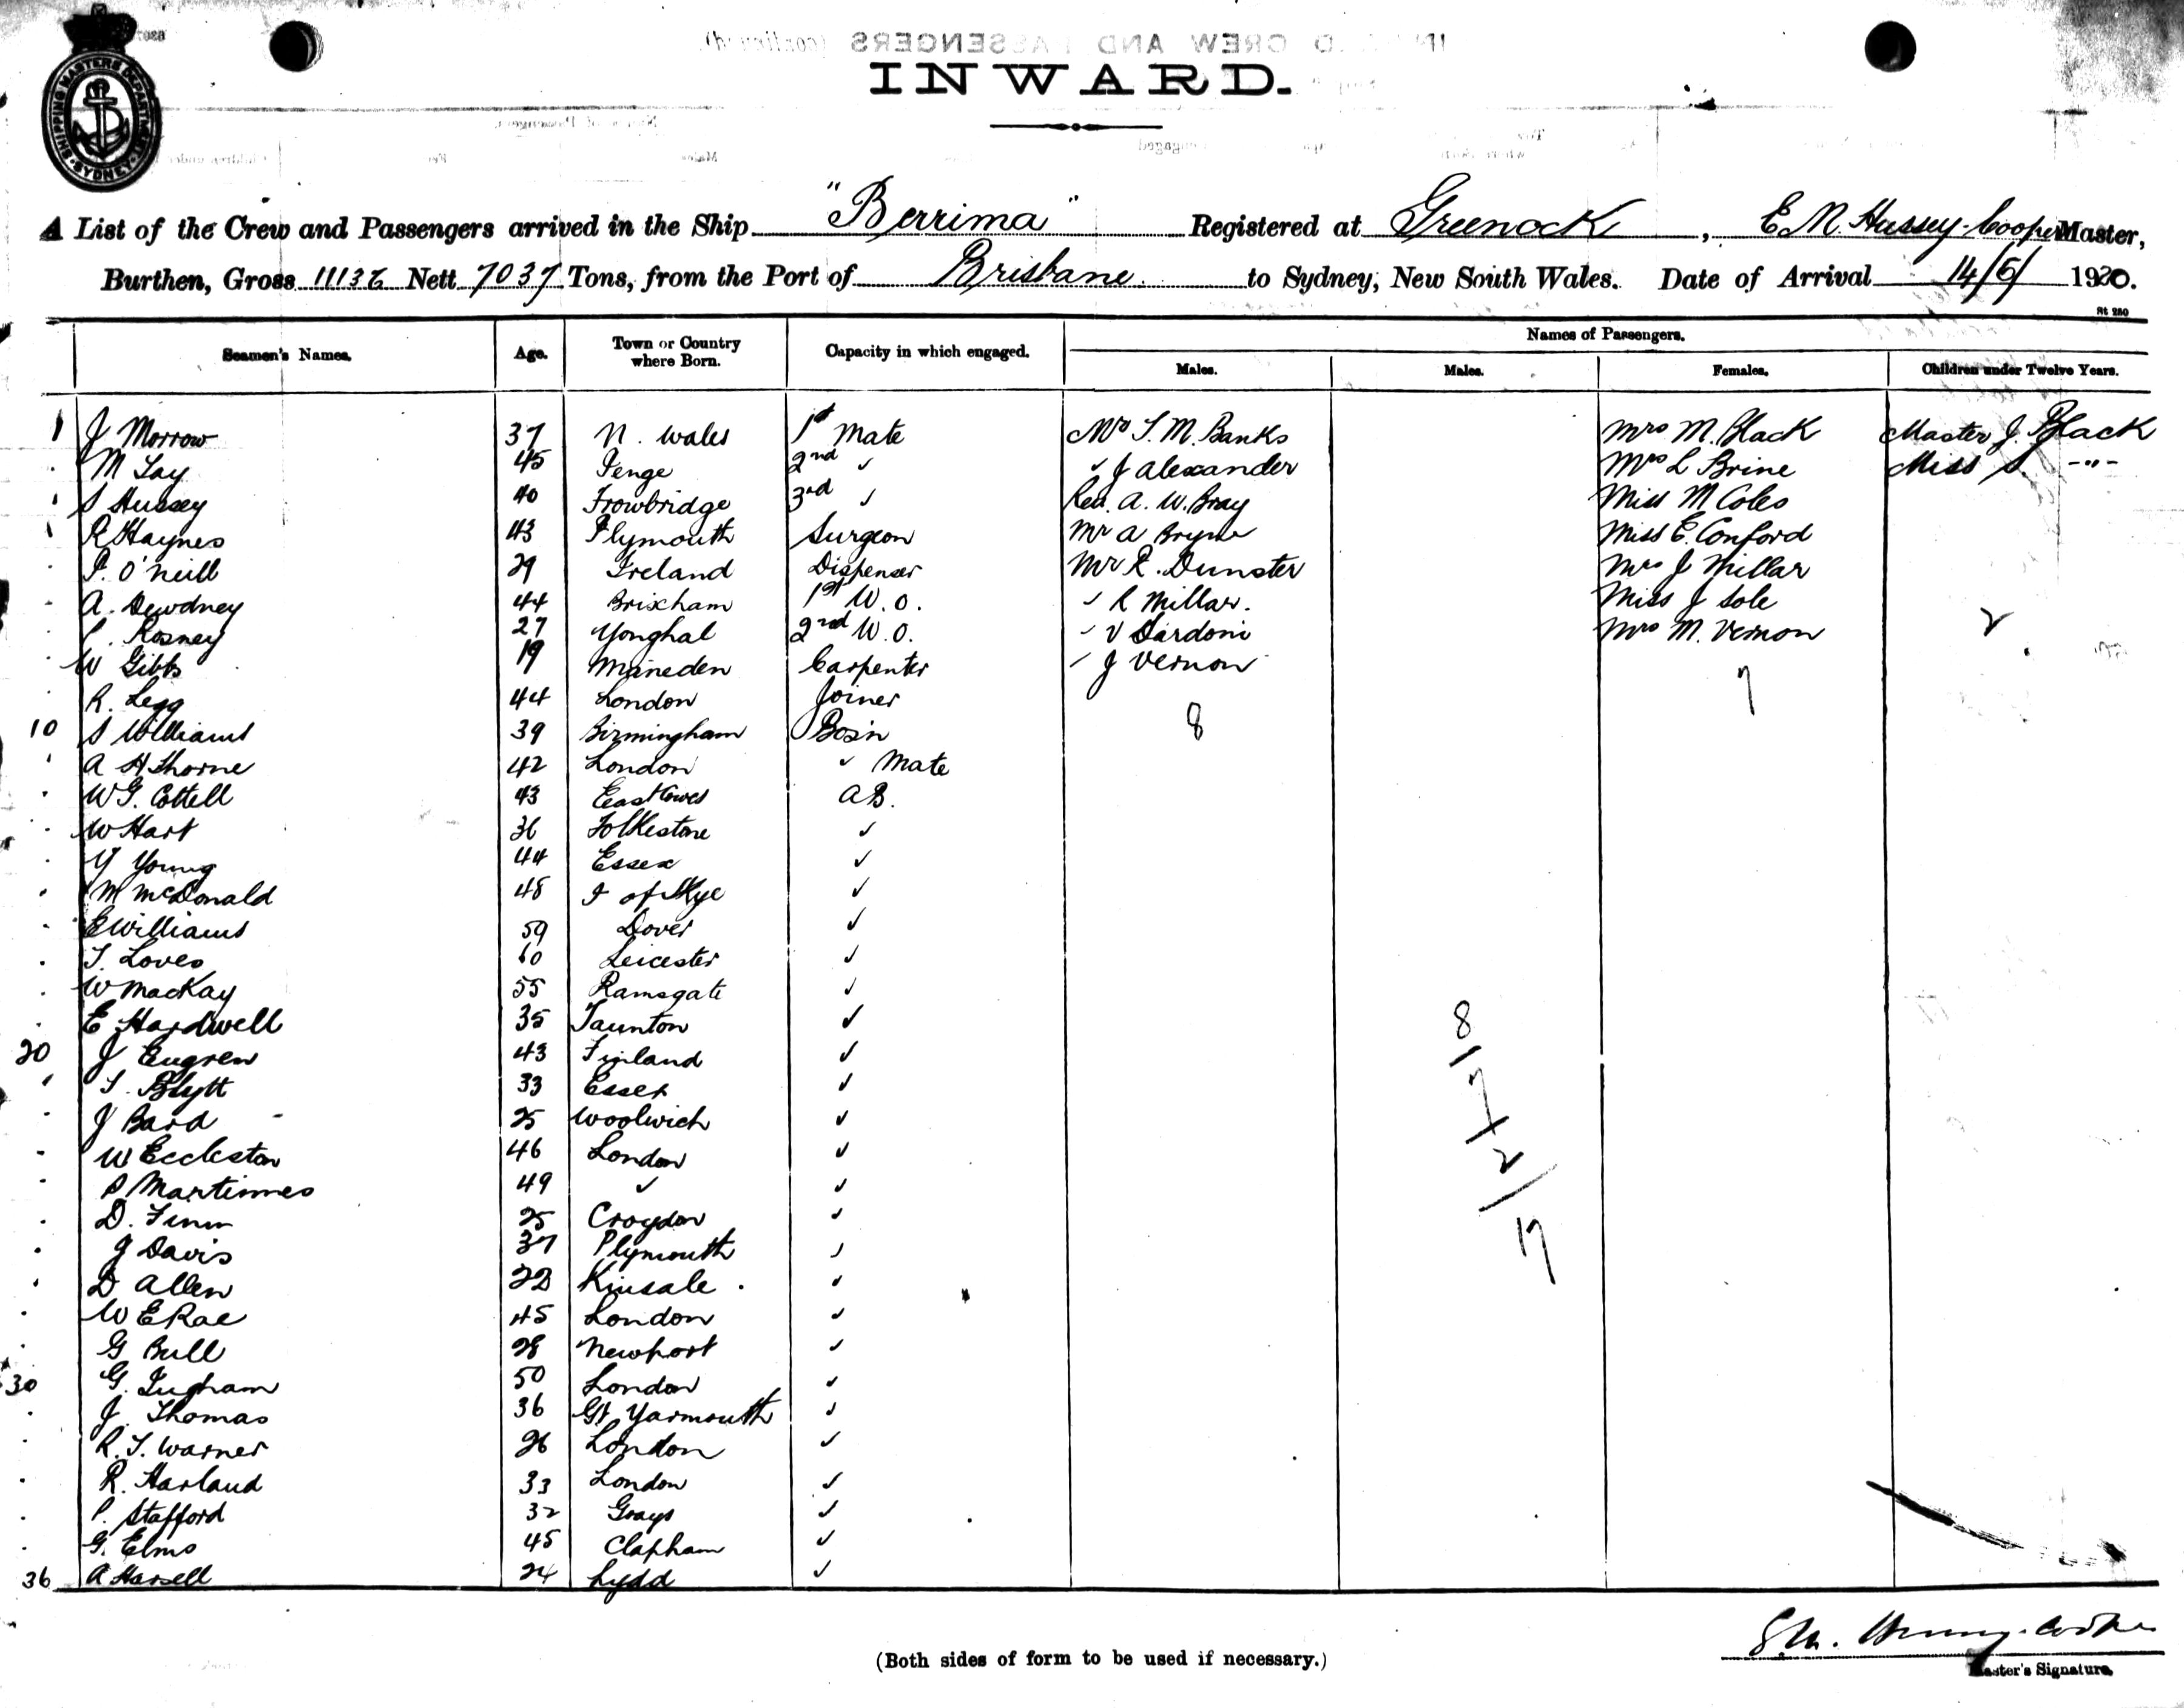 SHIPPING MASTERS DEPARTMENT SYDNEY
INWARD.
A List of the Crew and Passengers arrived in the Ship "Berrima" Registered at Greenock, E M Hussey-Cooper Master,
Burthen, Gross 11136 Nett 7037 Tons, from the Port of Brisbane to Sydney, New South Wales. Date of Arrival 14/6/1920.
Seamen's Names. Age. Town or Country where Born. Capacity in which engaged. Names of Passengers.
Males. Males. Females. Children under Twelve Years.
1 J Morrow 37 N. Wales 1st Mate Mr S. M. Banks Mrs M. Black Master J. Black
M Lay 45 Penge 2nd " J Alexander Mrs L Brine Miss S. -"-
S Hussey 40 Trowbridge 3rd " Rev. A. W. Bray Miss M Coles
R Haynes 43 Plymouth Surgeon Mr A Bryne Miss E. Conford
P. O'Neill 29 Ireland Dispenser Mr R. Dunster Mrs J Millar
A. Dewdney 44 Brixham 1st W.O. " R Millar. Miss J Sole
Rosney 27 Yonghal 2nd W.O. " V Dardoni Mrs M. Vernon 2
W Gibbs 19 Maneden Carpenter " J Vernon 7
R. Legg 44 London Joiner 8
10 S Williams 39 Birmingham Bosn
A H Thorne 42 London " Mate
W G. Cottell 43 East Cowes AB.
W Hart 36 Folkestone "
Y Young 44 Essex "
M McDonald 48 I of Skye "
E Williams 59 Dover "
T. Loves 60 Leicester "
W MacKay 55 Ramsgate "
E Hardwell 35 Taunton "
20 J Eugren 43 Finland "
T. Blytt 33 Essex "
J Bard 25 Woolwich "
W Eccleston 46 London "
P Martinnes 49 " "
D. Finn 25 Croydon "
J Davis 37 Plymouth "
D Allen 22 Kinsale "
W E Rae 45 London "
G Bull 28 Newport "
30 G. Ingham 50 London "
J. Thomas 36 Gt Yarmouth "
R. T. Warner 26 London "
R. Harland 33 London "
P. Stafford 32 Grays "
G. Elms 45 Clapham "
36 A Harsell 24 Lydd "
8/7/2/17
(Both sides of form to be used if necessary.)
Master's Signature.